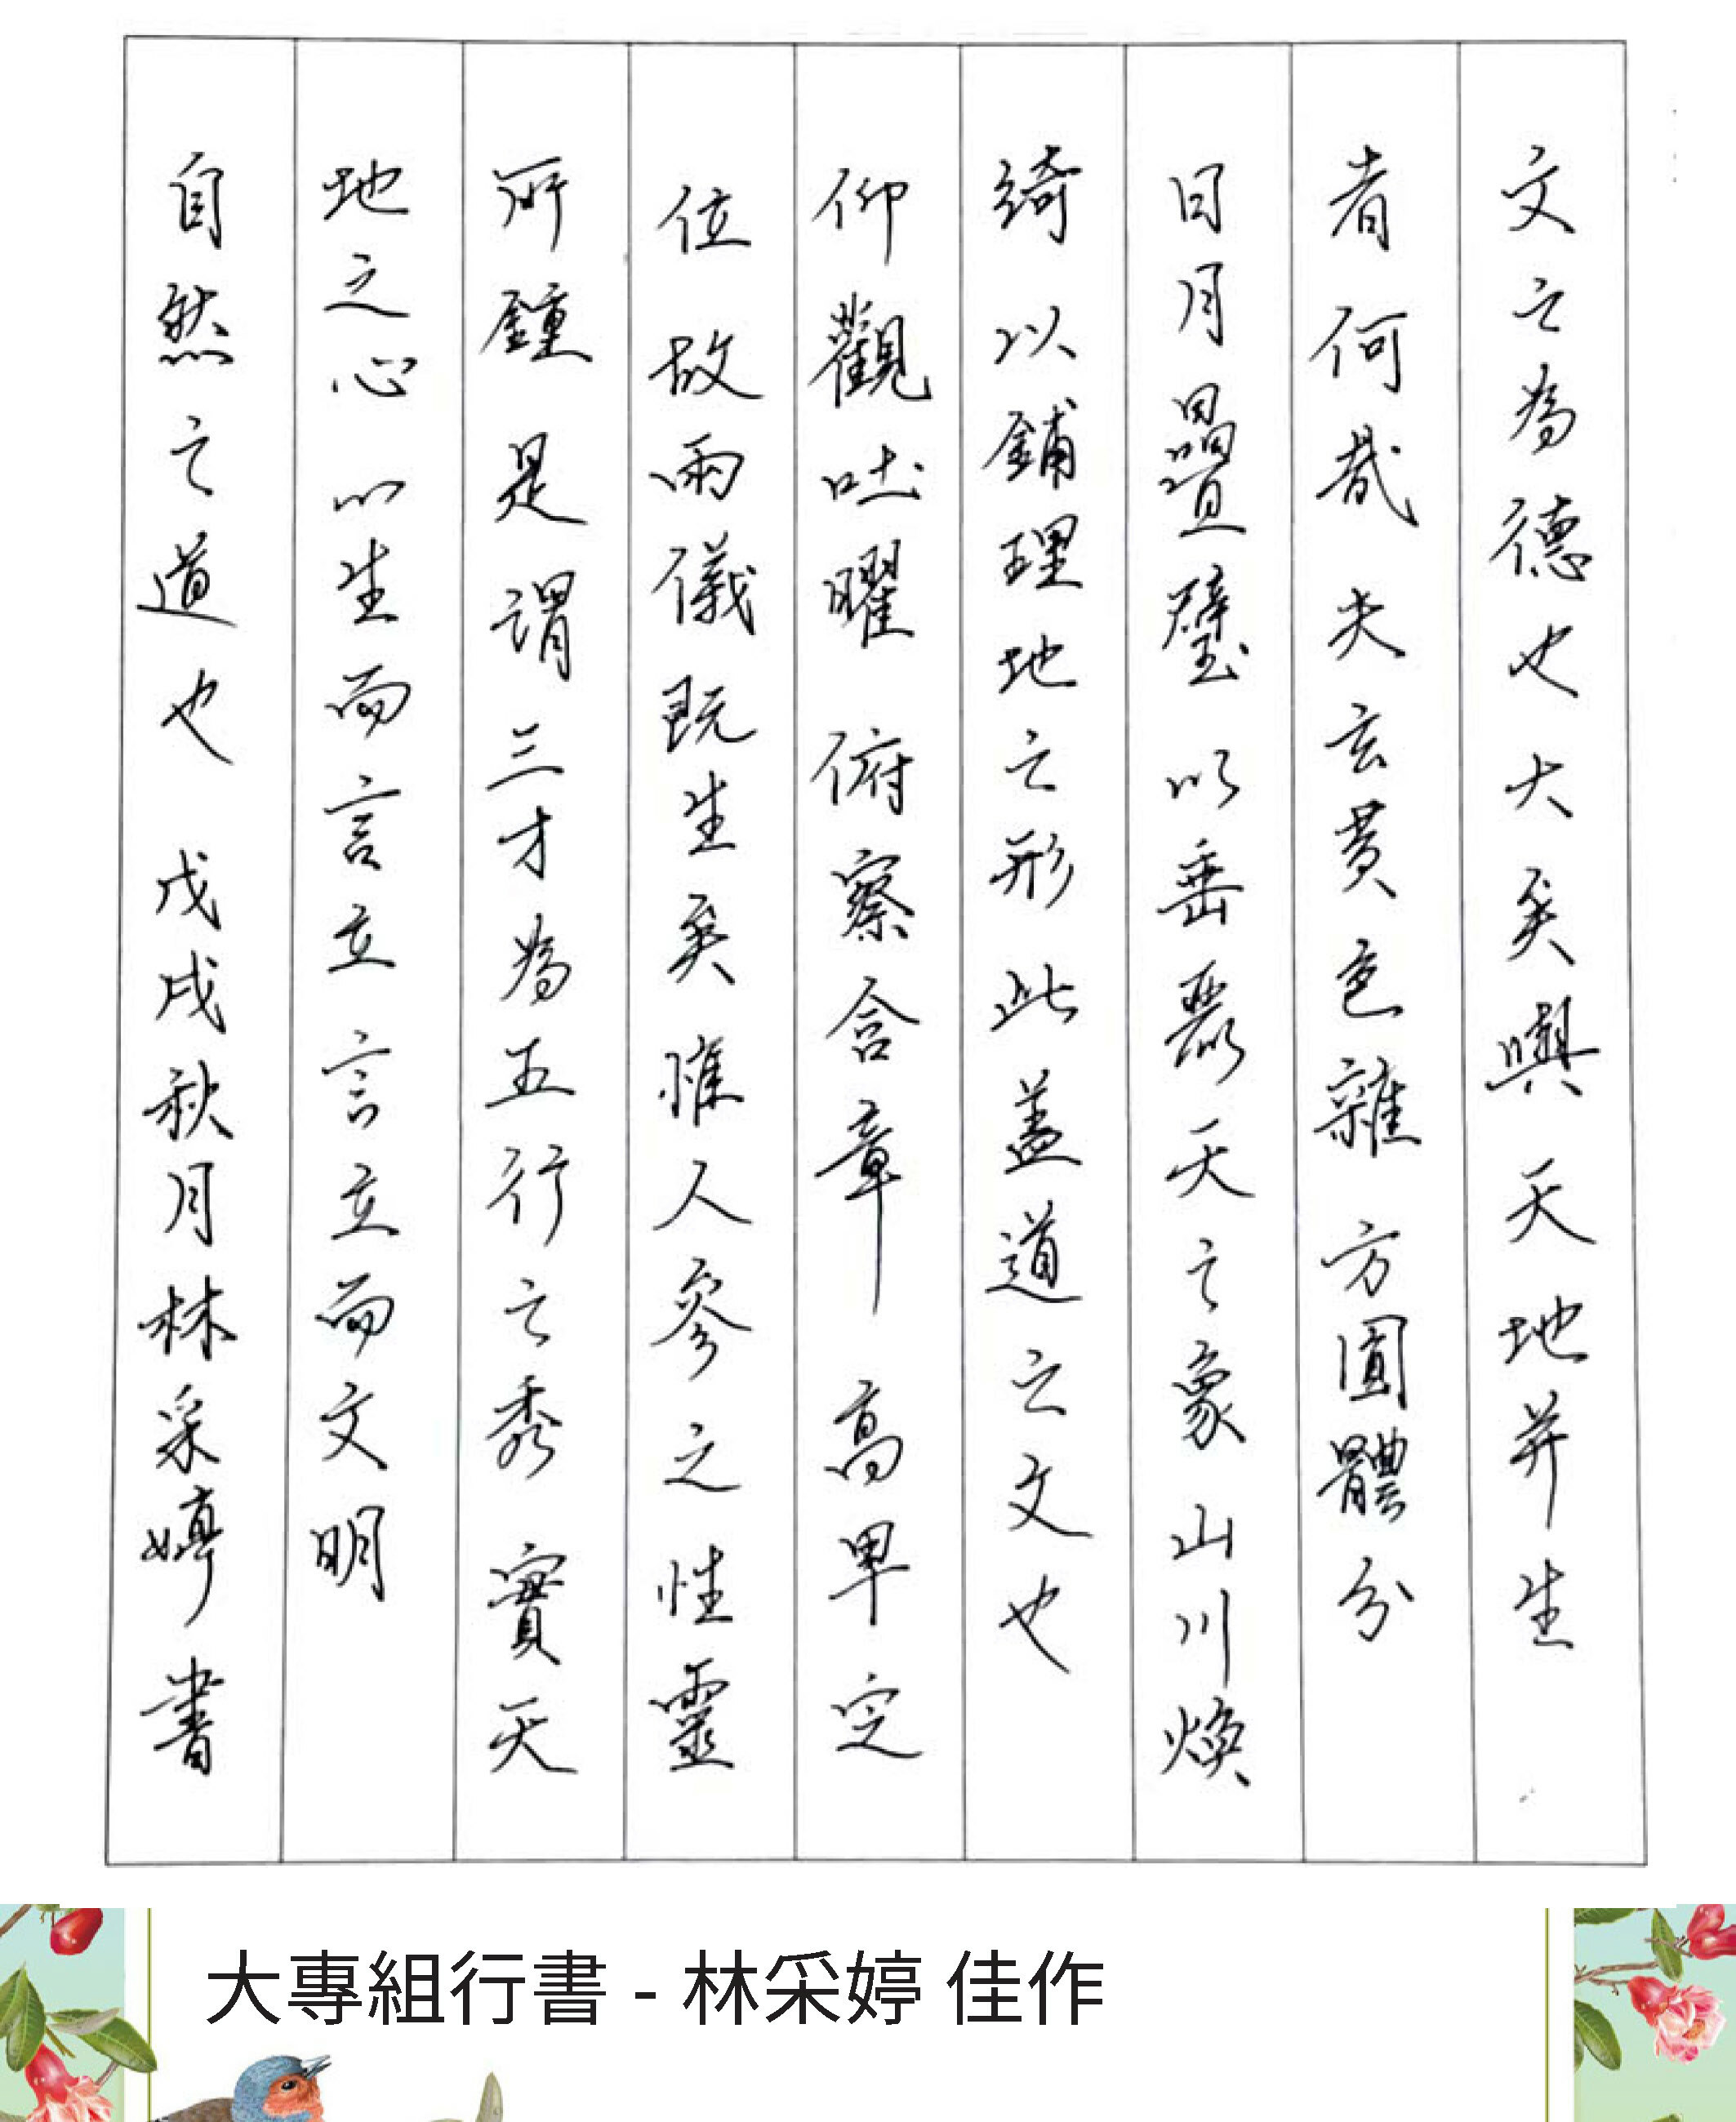 文之為德也大矣與天地并生
者何哉夫玄黃色雜方圓體分
日月疊璧以垂麗天之象山川煥
綺以鋪理地之形此蓋道之文也
仰觀吐曜俯察含章高卑定
位故兩儀既生矣惟人參之性靈
所鍾是謂三才為五行之秀實天
地之心心生而言立言立而文明
自然之道也 戊戌秋月林采婷書
大專組行書 - 林采婷 佳作